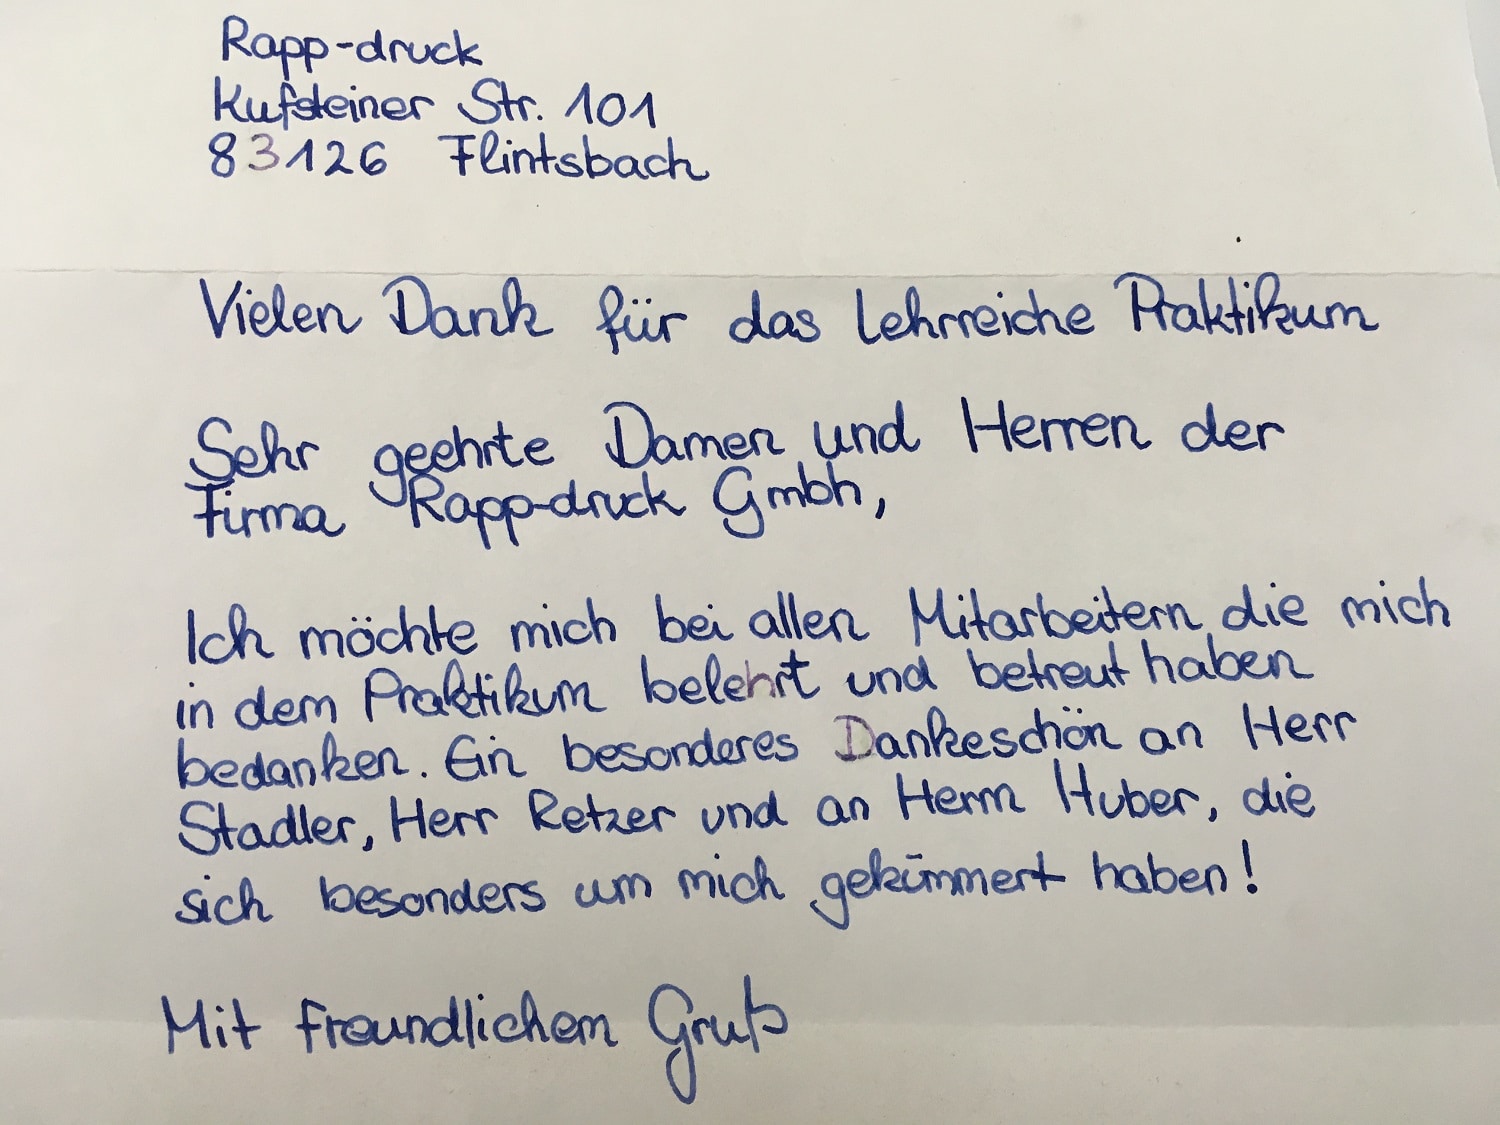 Rapp-druck
Kufsteiner Str. 101
83126 Flintsbach
Vielen Dank für das lehrreiche Praktikum
Sehr geehrte Damen und Herren der
Firma Rapp-druck Gmbh,
Ich möchte mich bei allen Mitarbeitern die mich
in dem Praktikum belehrt und betreut haben
bedanken. Ein besonderes Dankeschön an Herr
Stadler, Herr Retzer und an Herrn Huber, die
sich besonders um mich gekümmert haben!
Mit freundlichem Gruß